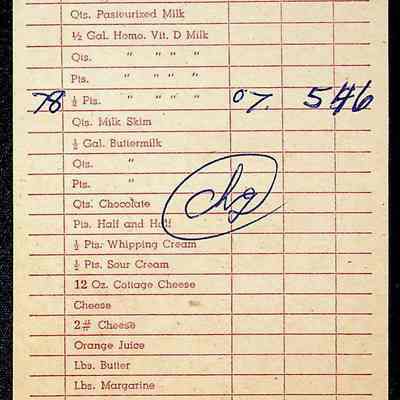 Qts. Pasteurized Milk
½ Gal. Homo. Vit. D Milk
Qts. " " " "
Pts. " " " "
78 ½ Pts. " " " " 07. 546
Qts. Milk Skim
½ Gal. Buttermilk
Qts. "
Pts. "
Qts. Chocolate chg
Pts. Half and Half
½ Pts. Whipping Cream
½ Pts. Sour Cream
12 Oz. Cottage Cheese
Cheese
2# Cheese
Orange Juice
Lbs. Butter
Lbs. Margarine